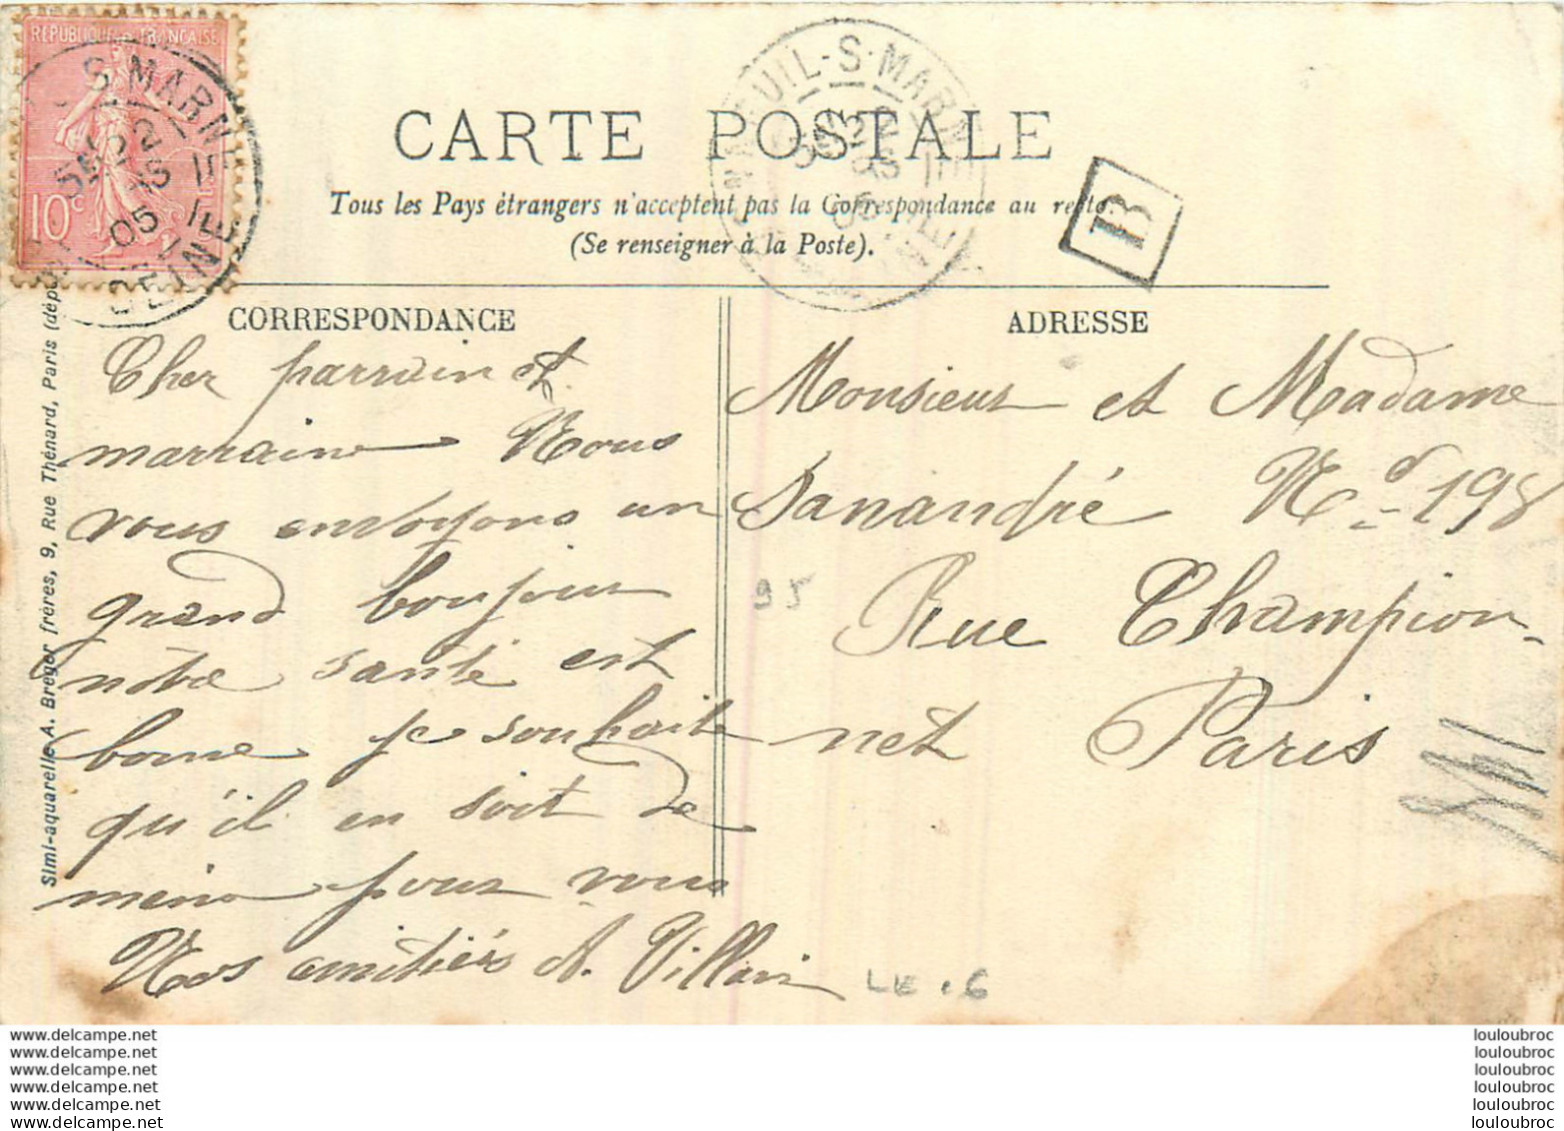 RÉPUBLIQUE FRANÇAISE
10c
S-MARNE
22
15
05
SEINE
S-MARNE
CARTE POSTALE
Tous les Pays étrangers n'acceptent pas la Correspondance au recto.
(Se renseigner à la Poste).
B
CORRESPONDANCE
Cher parrain et
marraine Nous
vous envoyons un
grand bonjour
notre santé est
bonne je souhaite
qu'il en soit de
même pour vous
Nos amitiés A. Villain
ADRESSE
Monsieur et Madame
Sanandré Nd-198
Rue Championnet
Paris
95
LE .6
Simi-aquarelle A. Breger frères, 9, Rue Thénard, Paris (dép
www.delcampe.net
www.delcampe.net
www.delcampe.net
www.delcampe.net
www.delcampe.net
www.delcampe.net
louloubroc
louloubroc
louloubroc
louloubroc
louloubroc
louloubroc